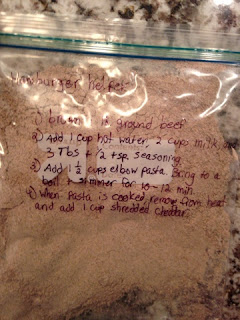 Hamburger helper
1) brown 1 lb ground beef
2) Add 1 cup hot water, 2 cups milk, and
3 Tbs + 1/2 tsp. seasoning
3) Add 1 1/2 cups elbow pasta. Bring to a
boil + simmer for 10-12 min.
4) When pasta is cooked remove from heat
and add 1 cup shredded cheddar.